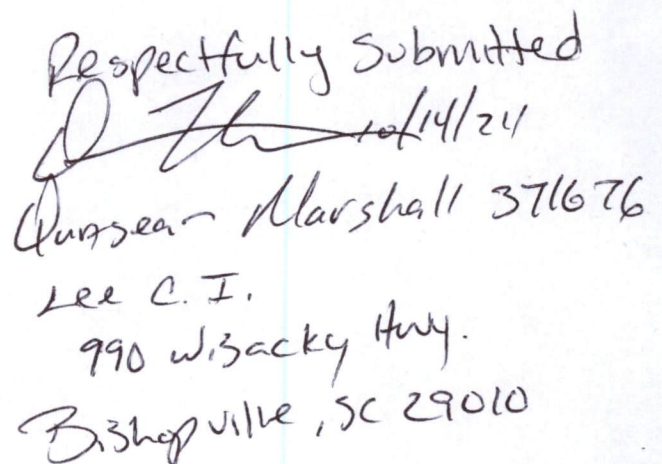 Respectfully Submitted
10/14/24
Marshall 371676
Lee C. I.
990 Wisacky Hwy.
Bishopville, SC 29010